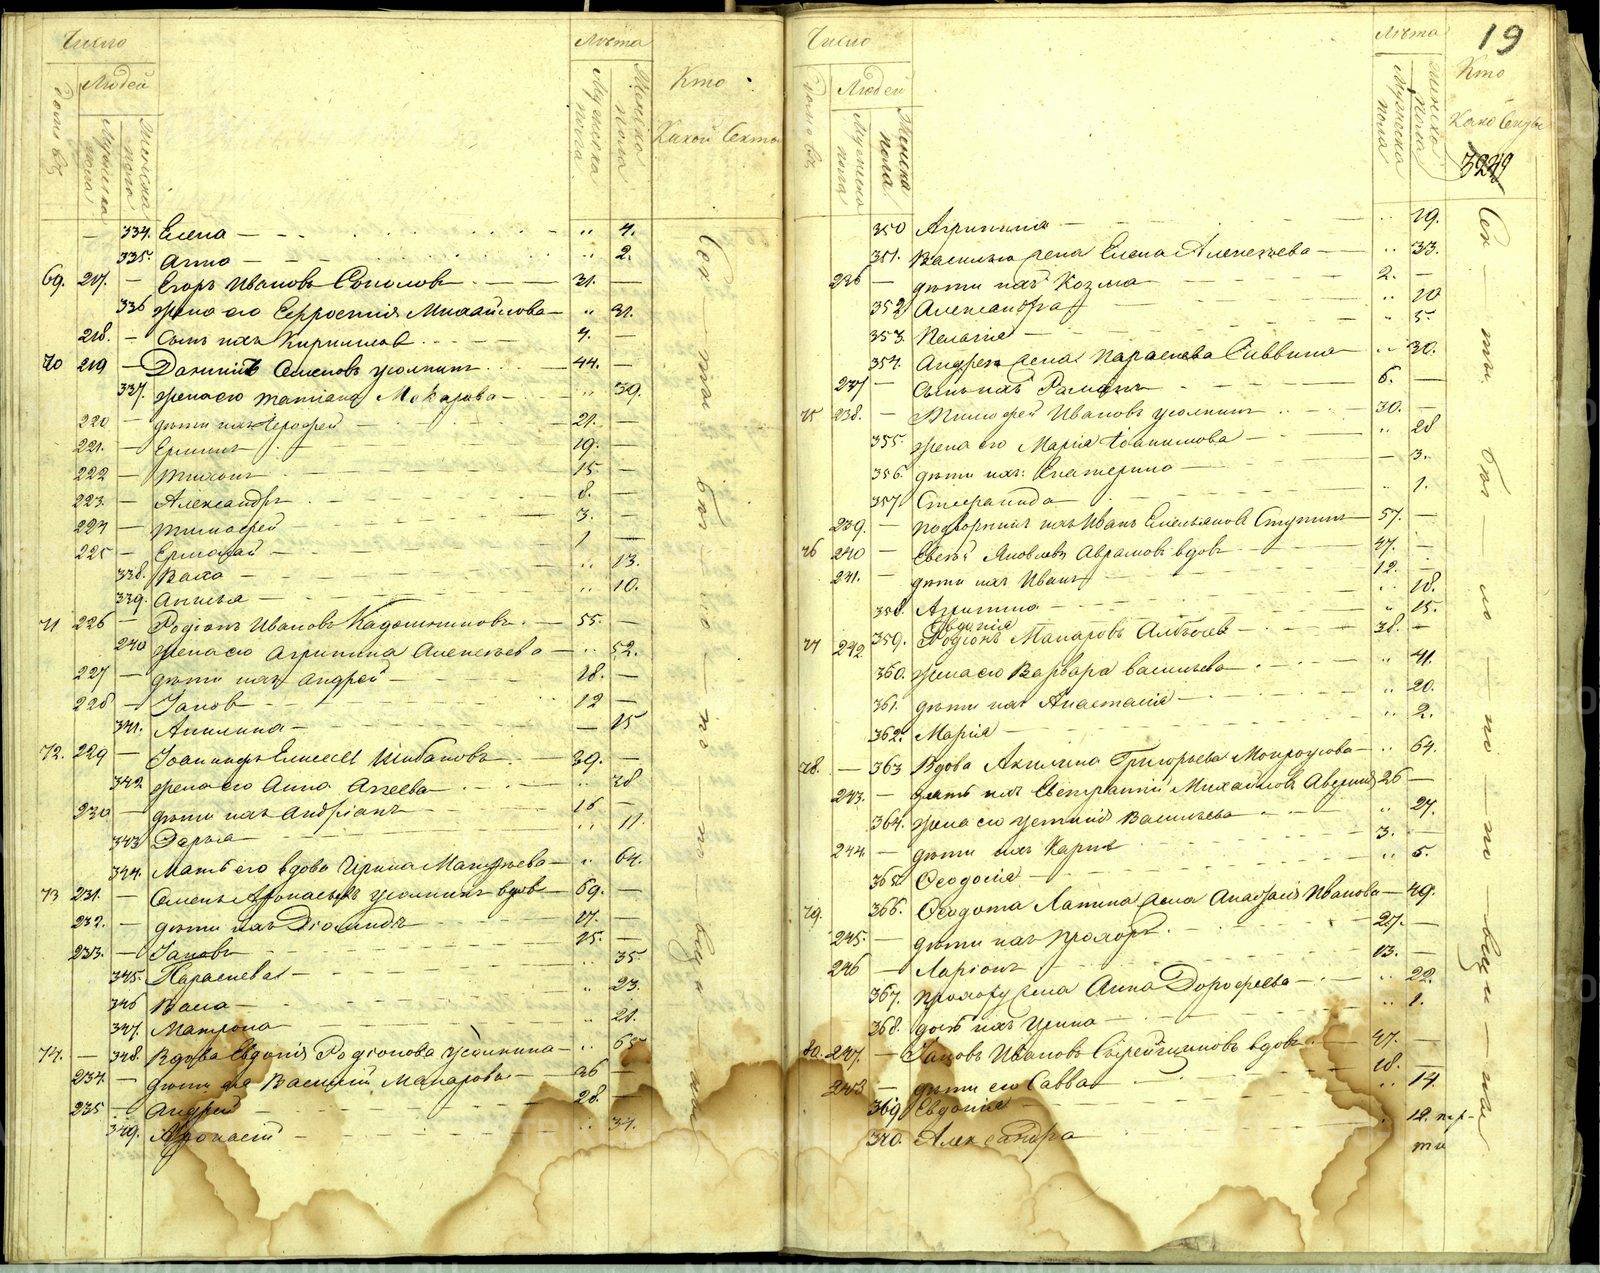 Число
Людей
Домовъ
Мужеска пола
Женска пола
Лѣта
Мужеска пола
Женска пола
Кто
Какой Секты
334. Елена — 4.
335. Анна — 2.
69. 217. — Егоръ Ивановъ Соколовъ — 31. —
336 жена его Евфросинія Михайлова — 31.
218. — Сынъ ихъ Кириллъ — 4. —
70 219 — Даніилъ Семеновъ Усолкинъ — 44. —
337. жена его Татіана Макарова — 39.
220 — дѣти ихъ Іерофей — 21. —
221. — — 19. —
222 — Тихонъ — 15 —
223. — Александръ — 8. —
224 — Тимофей — 3. —
225 — Ермолай — 1 —
338. Васса — 13.
339. Анисья — 10.
71 226 — Родіонъ Ивановъ — 55. —
340 жена его Агрипина Алексѣева — 52.
227 — дѣти ихъ Андрей — 18. —
228 — Іаковъ — 12 —
341. Акилина — 15
72. 229 — Іоаннъ Елисеевъ Шибановъ — 39. —
342 жена его Анна Агѣева — 38
230 — дѣти ихъ Андріанъ — 16 —
343 Дарья — 11.
344. Мать его вдова Ирина Матфѣева — 64.
73 231. — Семенъ Афонасьевъ Усолкинъ вдовъ — 69. —
232. — дѣти ихъ Діомидъ — 27. —
233. — Іаковъ — 25. —
345. Параскева — 35
346 Васса — 23.
347. Матрона — 21.
74. — 348. Вдова Евдокія Родіонова Усолкина — 65
234. — дѣти ея Василій Макаровъ — 36 —
235 — Андрей — 28. —
349. — 34.
Секта безпоповщина
19
Число
Людей
Домовъ
Мужеска пола
Женска пола
Лѣта
Мужеска пола
Женска пола
Кто
Какой Секты
350 Агрипина — 19.
351. Василья жена Елена Алексѣева — 33.
236 — дѣти ихъ Козма — 2. —
352 Александра — 10
353. Пелагія — 5.
354. Андрея жена Параскева Саввина — 30.
237 — Сынъ ихъ Романъ — 6. —
75 238. — Тимофей Ивановъ Усолкинъ — 30. —
355. жена его Марія Іоакимова — 28
356. дѣти ихъ: Екатерина — 3.
357 Стефанида — 1.
239. — подворникъ ихъ Иванъ Емельяновъ Ступинъ — 57. —
76 240 — Яковлевъ Аврамовъ вдовъ — 47. —
241. — дѣти ихъ Иванъ — 12. —
358. Агрипина — 18.
359. Евдокія — 15.
77 242 Родіонъ Макаровъ — 38. —
360. жена его Варвара Васильева — 41.
361. дѣти ихъ Анастасія — 20.
362. Марія — 2.
78. — 363 Вдова Акилина Григорьева Мокроусова — 64.
243. — Евстратій Михайловъ — 26 —
364. жена его Устинія Васильева — 27.
244. — дѣти ихъ Карпъ — 3. —
365. Феодосія — 5.
79. 366. Феодота Лапина жена Анастасія Иванова — 49.
245. — дѣти ихъ Прохоръ — 27. —
246 — Ларіонъ — 13. —
367. Прохора жена Анна Дорофеева — 22.
368. дочь ихъ Ирина — 1.
80. 247. — Іаковъ Ивановъ вдовъ — 47. —
248 — дѣти его Савва — 18. —
369 Евдокія — 14.
370. Александра — 12.
Секта безпоповщина